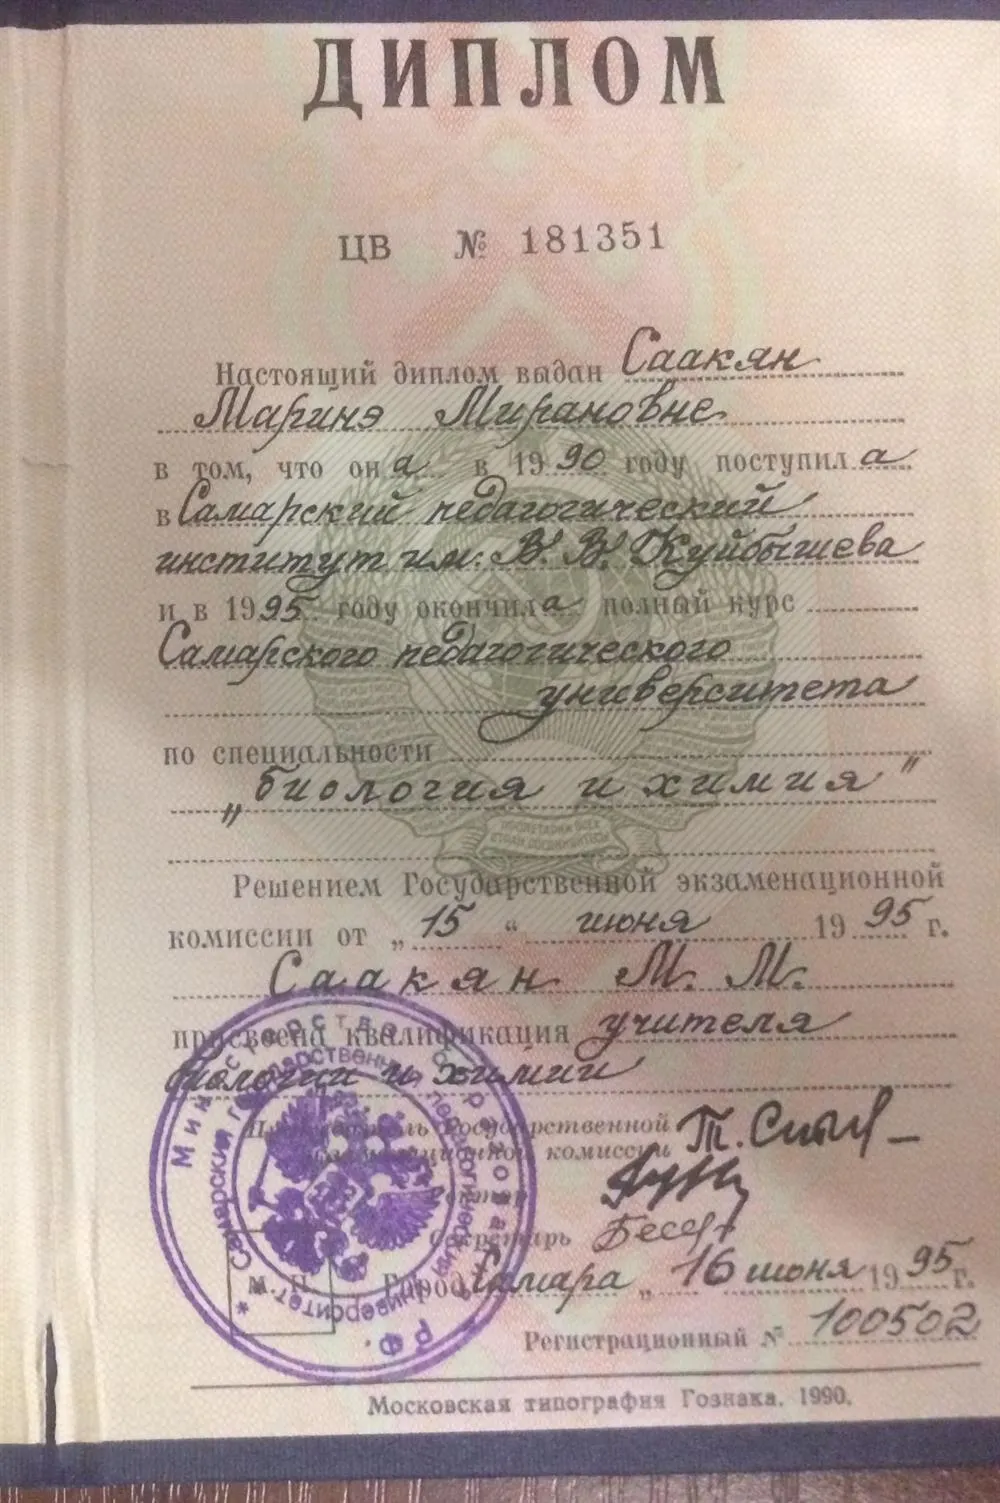 ДИПЛОМ
ЦВ № 181351
Настоящий диплом выдан Саакян
Маринэ Мирановне
в том, что она в 1990 году поступила
в Самарский педагогический
институт им. В. В. Куйбышева
и в 1995 году окончила полный курс
Самарского педагогического
университета
по специальности
„биология и химия"
ПРОЛЕТАРИИ ВСЕХ
СТРАН, СОЕДИНЯЙТЕСЬ!
Решением Государственной экзаменационной
комиссии от „15“ июня 1995 г.
Саакян М. М.
присвоена квалификация учителя
биологии и химии
Председатель Государственной
экзаменационной комиссии
Ректор
Секретарь
М. П. Город Самара „16 июня 1995 г.
Регистрационный № 100502
Московская типография Гознака. 1990.
Министерство образования РФ.
* Самарский государственный педагогический университет.